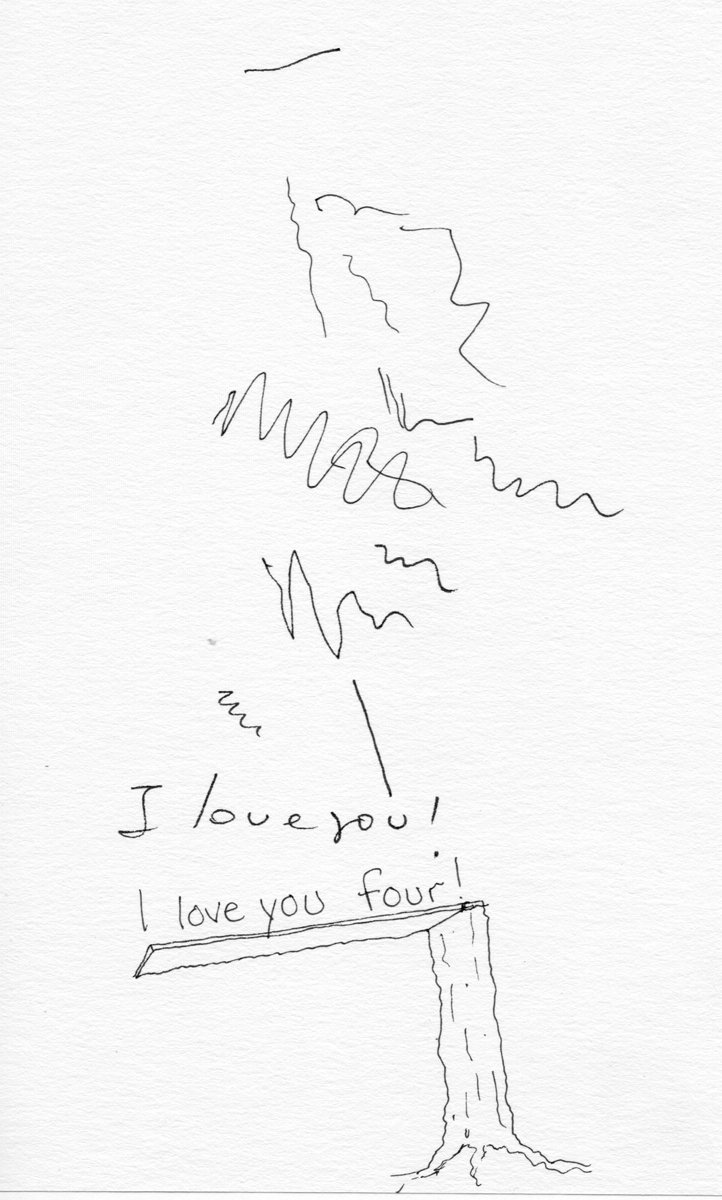 I love you!
I love you four!